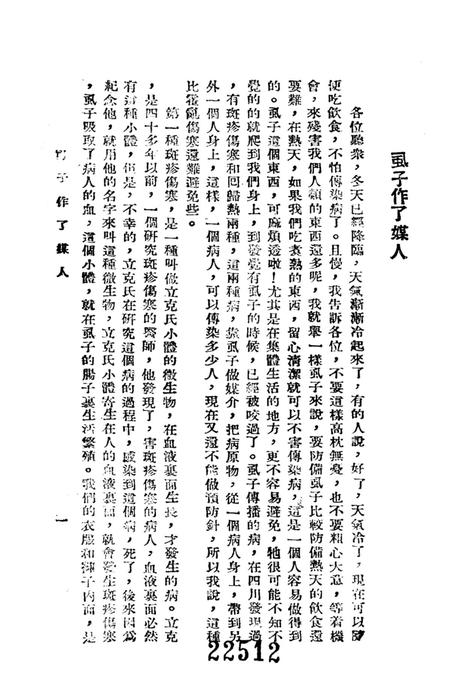 虱子作了媒人
各位聽衆，冬天已經降臨，天氣漸漸冷起來了，有的人說，好了，天氣冷了，現在可以隨
便吃飲食，不怕傳染病了。且慢，我告訴各位，不要這樣高枕無憂，也不要粗心大意，等着機
會，來殘害我們人類的東西還多呢，我就舉一樣虱子來說，要防備虱子比較防備熱天的飲食還
要難，在熱天，如果我們吃煮熱的東西，留心清潔就可以不害傳染病，這是一個人容易做得到
的。虱子這個東西，可麻煩透啦！尤其是在集體生活的地方，更不容易避免，牠很可能不知不
覺的的就爬到我們身上，到發覺有虱子的時候，已經被咬過了。虱子傳播的病，在四川發現過
，有斑疹傷寒和回歸熱兩種，這兩種病，靠虱子做媒介，把病原物，從一個病人身上，帶到另
外一個人身上，這樣，一個病人，可以傳染多少人，現在又還不能做預防針，所以我說，這種
比霍亂傷寒還難避免些。
第一種斑疹傷寒，是一種叫做立克氏小體的微生物，在血液裏面生長，才發生的病。立克
，是四十多年以前，一個研究斑疹傷寒的醫師，他發現了，害斑疹傷寒的病人，血液裏面必然
有這種小體，但是，不幸的，立克氏在研究這個病的過程中，感染到這個病，死了，後來因爲
紀念他，就用他的名字來叫這種微生物，立克氏小體寄生在人的血液裏面，就會發生斑疹傷寒
，虱子吸取了病人的血，這個小體，就在虱子的腸子裏生活繁殖。我們的衣服和褲子內面，是
虱子作了媒人
一
22512